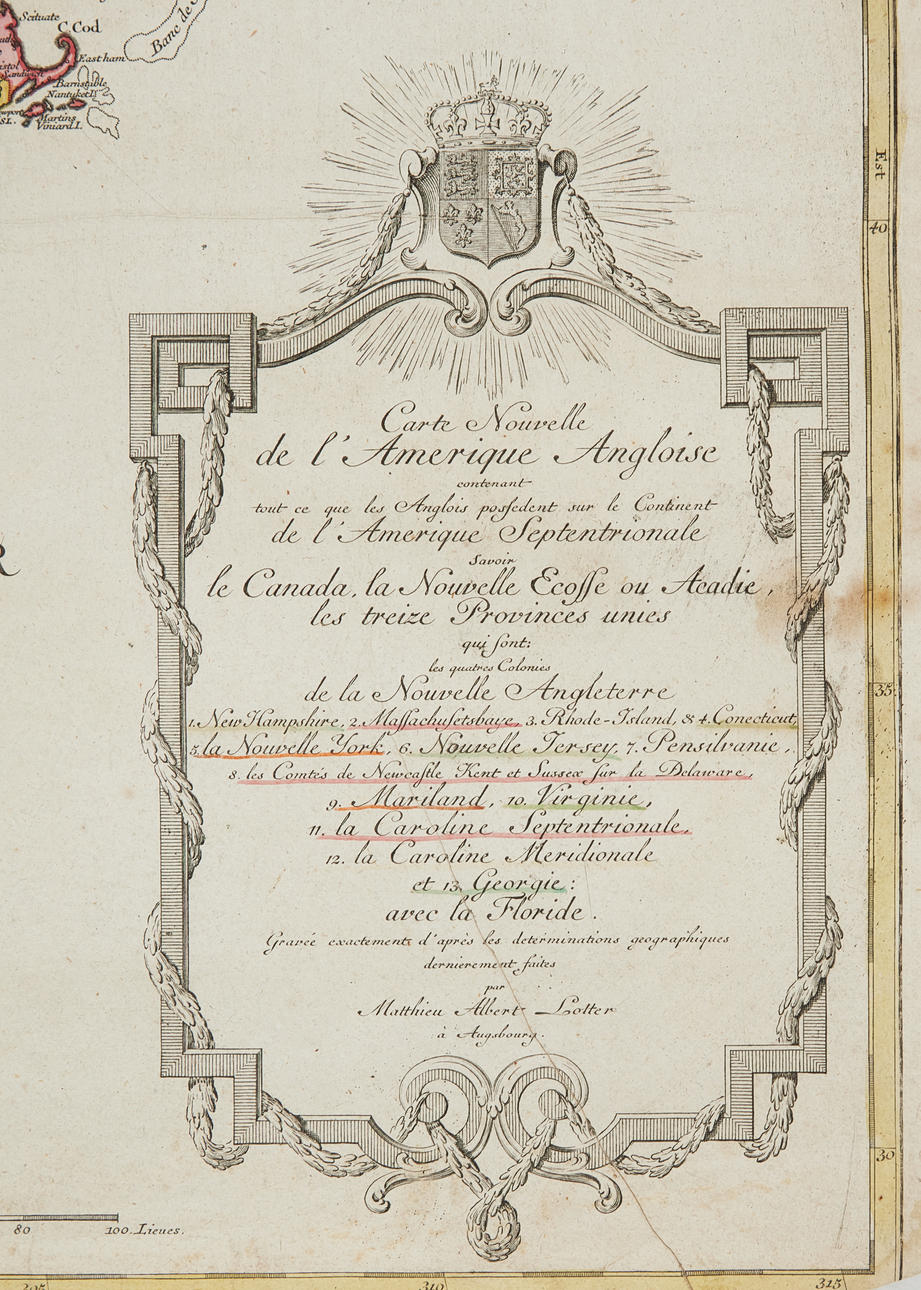 Scituate
C. Cod
Banc de
Eastham
Sandwich
Barnstable
Nantuket I.
Martins
Viniard I.
Est
40
35
30
Carte Nouvelle
de l'Amerique Angloise
contenant
tout ce que les Anglois possedent sur le Continent
de l'Amerique Septentrionale
Savoir
le Canada, la Nouvelle Ecosse ou Acadie,
les treize Provinces unies
qui sont:
les quatres Colonies
de la Nouvelle Angleterre
1. New Hampshire, 2. Massachusetsbaye, 3. Rhode-Island, & 4. Conecticut,
5. la Nouvelle York, 6. Nouvelle Jersey, 7. Pensilvanie,
8. les Comtés de Newcastle Kent et Sussex sur la Delaware,
9. Mariland, 10. Virginie,
11. la Caroline Septentrionale,
12. la Caroline Meridionale
et 13. Georgie:
avec la Floride.
Gravée exactement d'après les determinations geographiques
dernierement faites
par
Matthieu Albert Lotter
à Augsbourg.
80 100. Lieues.
305 310 315